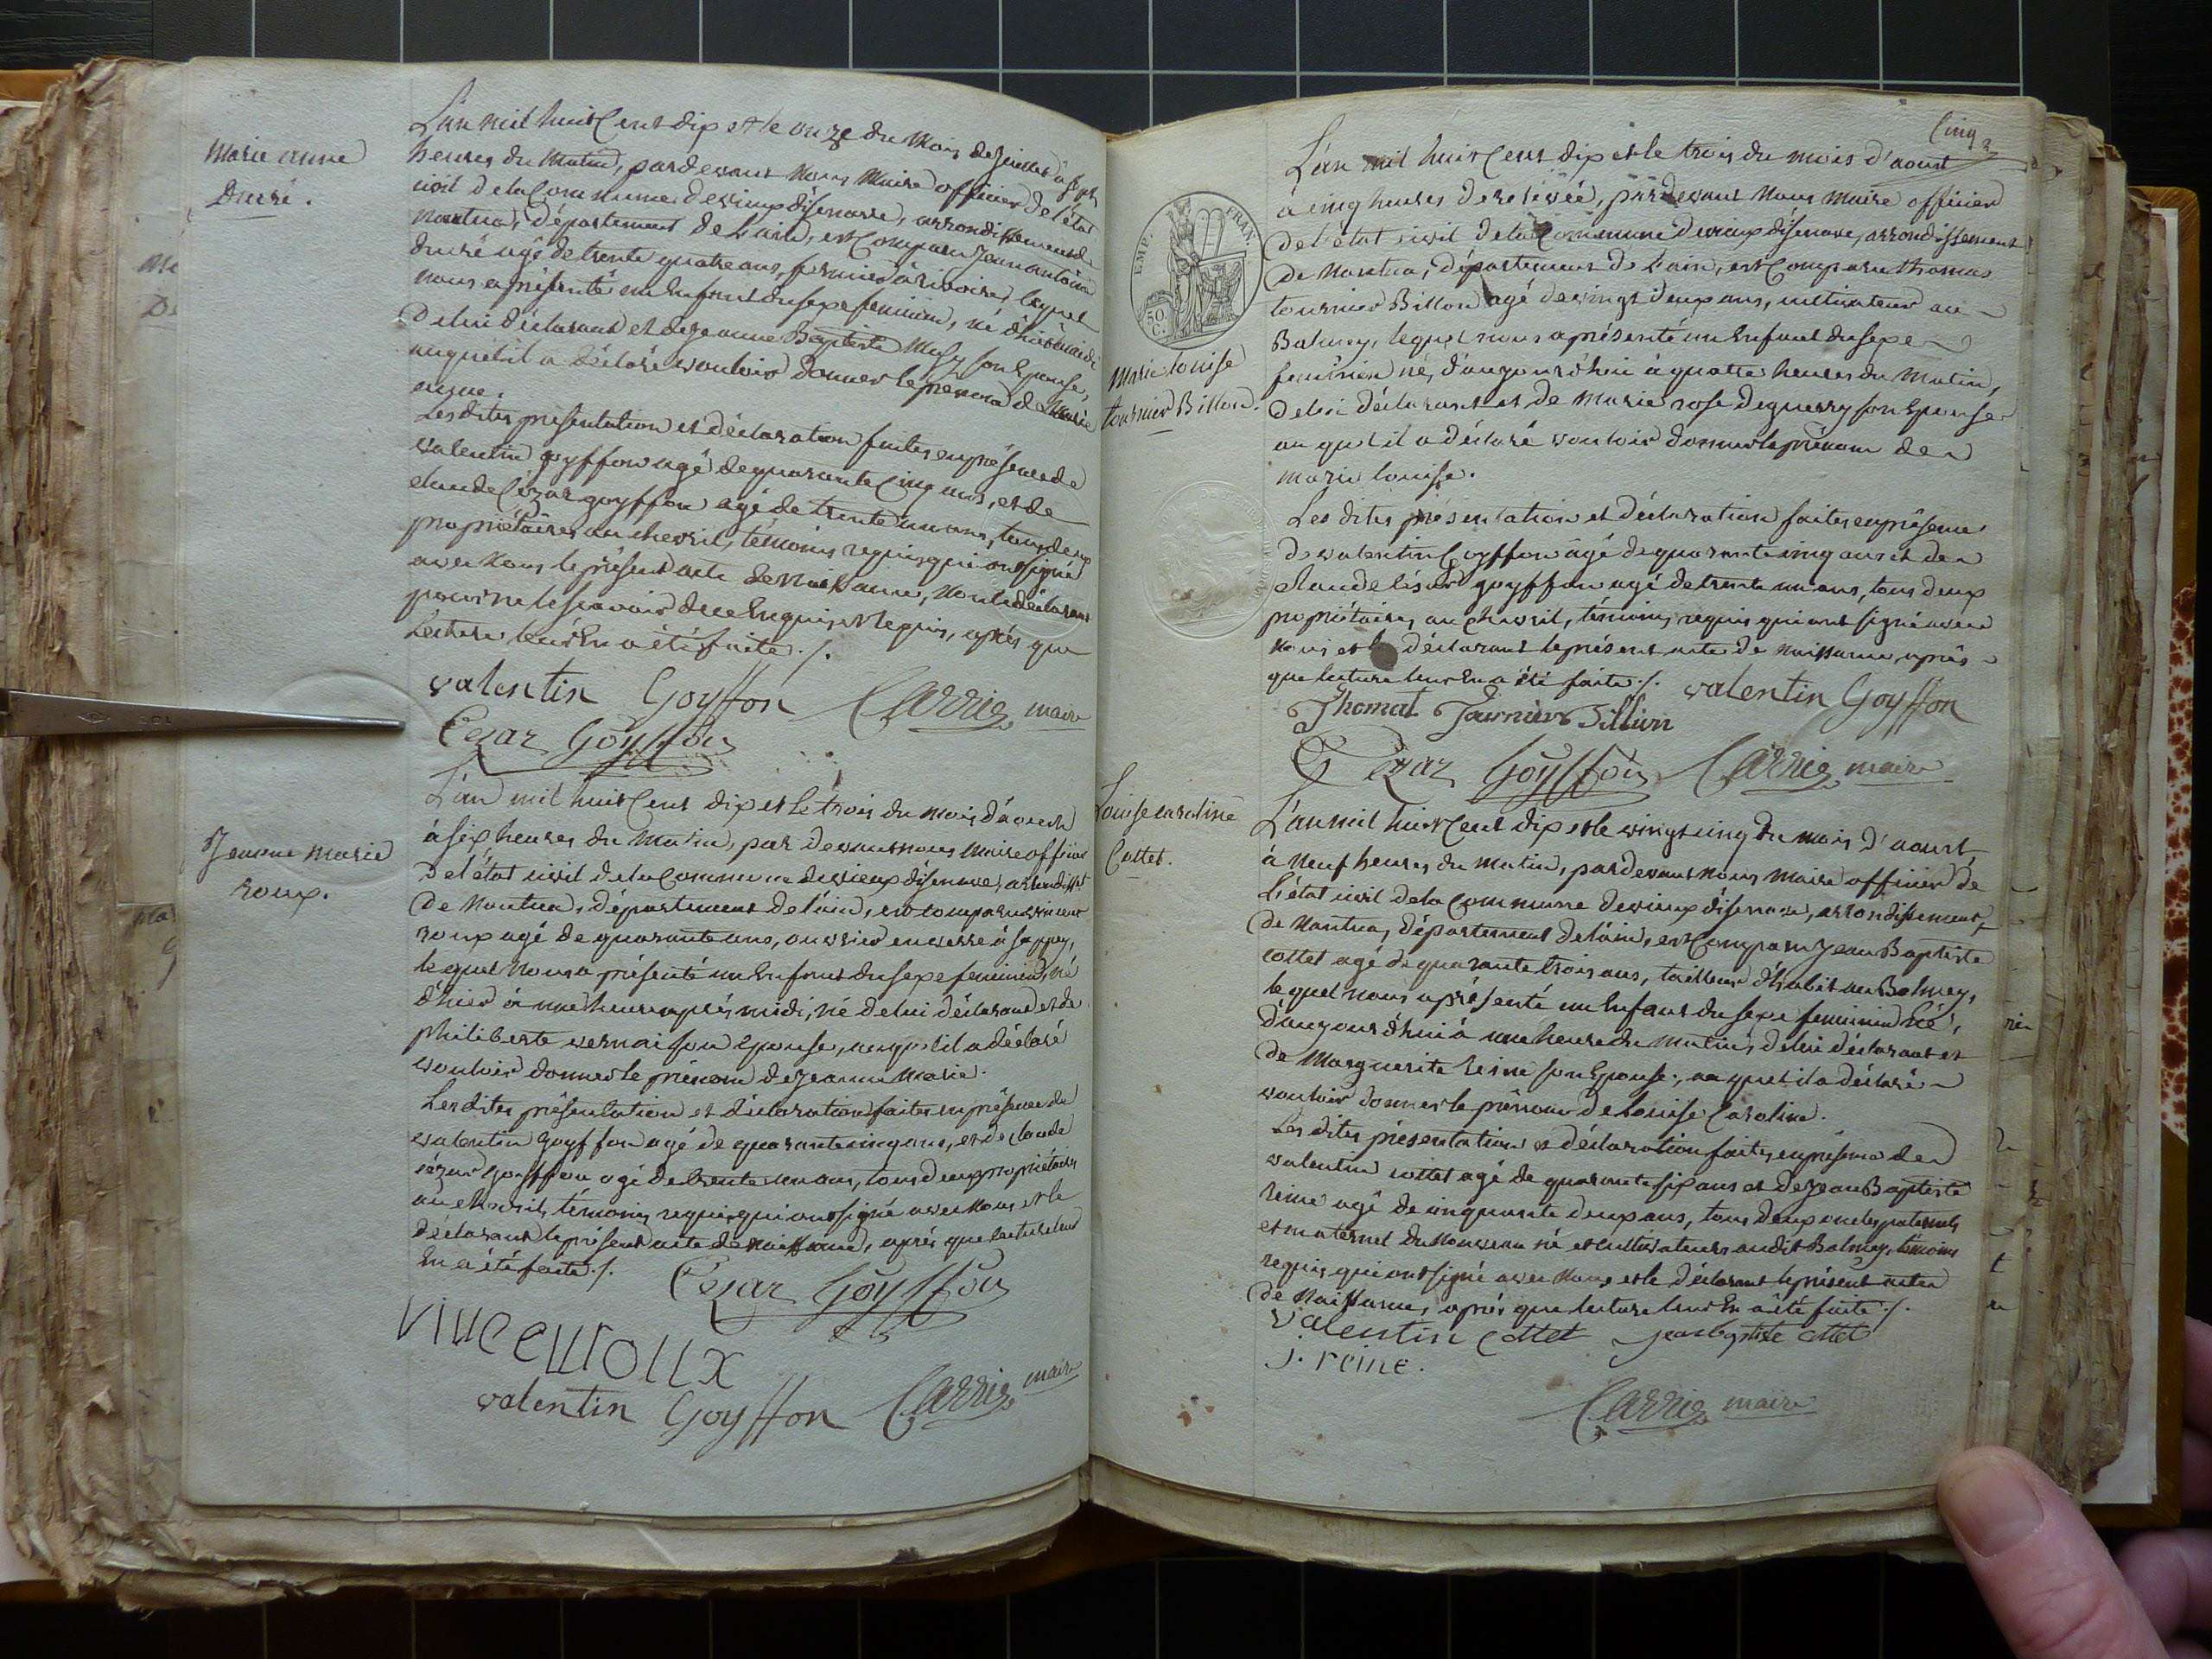 Marie anne
Ducré.
L'an mil huit Cent dix et le onze du Mois de Juillet à sept
heures du Matin, pardevant Nous Maire officier de l'état
civil de la Commune de vieux d'isenave, arrondissement de
Nantua, département de L'ain, est Comparu Jean antoine
ducré agé de trente quatre ans, fermier à rivoire, lequel
nous a présenté un Enfant du sexe feminin, né d'hier à midi
De lui déclarant et de jeanne Baptiste son Epouse,
auquel il a déclaré vouloir donner le prenom de Marie
anne.
Les dites presentation et déclaration faites en présence de
valentin goyffon agé de quarante Cinq ans, et de
claude Cézar goyffon agé de trente un ans, tous deux
propriétaires au chevril, témoins requis qui ont signé
avec Nous le présent acte de Naissance, Non le déclarant
pour ne le scavoir de ce Enquis et Requis, après que
Lecture leur En a été faite ./.
valentin Goyffon Carrier maire
Cezar Goyffon
Jeanne Marie
roux.
L'an mil huit Cent dix et le trois du mois d'aoust
à six heures du Matin, par devant nous Maire officier
De l'état civil de la Commune de vieux d'isenave, arrondisst
De Nantua, département de l'ain, est comparu vincent
roux agé de quarante ans, ouvrier en verre à sappey,
lequel Nous a présenté un Enfant du sexe feminin, né
d'hier à une heure après midi, né de lui déclarant et de
philiberte vernai son Epouse, auquel il a déclaré
vouloir donner le prénom de Jeanne Marie.
Les dites présentation et déclaration faites en présence de
valentin goyffon agé de quarante cinq ans, et de claude
cézar goyffon agé de trente un ans, tous deux propriétaires
au chevril, témoins requis qui ont signé avec Nous et le
Déclarant le présent acte de naissance, après que lecture leur
En a été faite ./. Cezar Goyffon
vincent roux
valentin Goyffon Carrier maire
Cinq
EMP. FRAN.
50 C.
Marie louise
tournier Billon.
L'an mil huit Cent dix et le trois du mois d'aoust
à cinq heures de relevée, pardevant Nous Maire officier
De l'état civil de la Commune de vieux d'isenave, arrondissement
De Nantua, département de l'ain, est Comparu thomas
tournier Billon agé de vingt deux ans, cultivateur au
Balmey, lequel nous a présenté un Enfant du sexe
feminin né, d'aujourd'hui à quatre heures du Matin,
De lui déclarant et de Marie rose deguerry son Epouse
auquel il a déclaré vouloir donner le prénom de
marie louise.
Les dites présentation et déclaration faites en présence
de valentin Goyffon âgé de quarante cinq ans et de
claude césar goyffon agé de trente un ans, tous deux
propriétaires au chevril, témoins requis qui ont signé avec
Nous et le déclarant le présent acte de naissance, après
que lecture leur En a été faite ./. valentin Goyffon
Thomat Tournier Billion
C Cezar Goyffon Carrier maire
Louise caroline
Cottet.
L'an mil huit Cent dix et le vingt cinq du mois d'aoust
à Neuf heures du matin, pardevant Nous Maire officier de
l'état civil de la Commune de vieux d'isenave, arrondissement
De Nantua, département de l'ain, est Comparu Jean Baptiste
cottet agé de quarante trois ans, tailleur d'habit au Balmey,
lequel nous a présenté un Enfant du sexe feminin Né,
d'aujourd'hui à une heure du Matin, de lui déclarant et
de Marguerite reine son Epouse, auquel il a déclaré
vouloir donner le prénom de Louise Caroline.
Les dites présentation et déclaration faites en présence de
valentin cottet agé de quarante six ans et de Jean Baptiste
reine agé de cinquante deux ans, tous deux oncles paternels
et maternel du Nouveau né et cultivateurs audit Balmey, témoins
requis qui ont signé avec Nous et le déclarant le présent acte
de Naissance, après que lecture leur En a été faite ./.
valentin Cottet jean baptiste cottet
j. reine.
Carrier maire